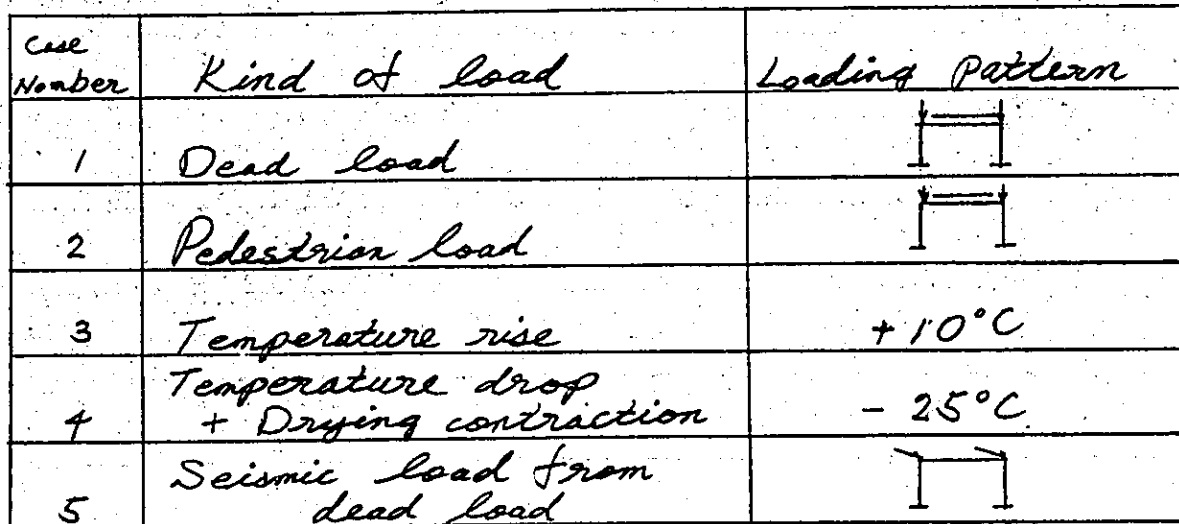 Case
Nomber
Kind of load
Loading pattern
1
Dead load
2
Pedestrian load
3
Temperature rise
+10°C
4
Temperature drop
+ Drying contraction
- 25°C
5
Seismic load from
dead load